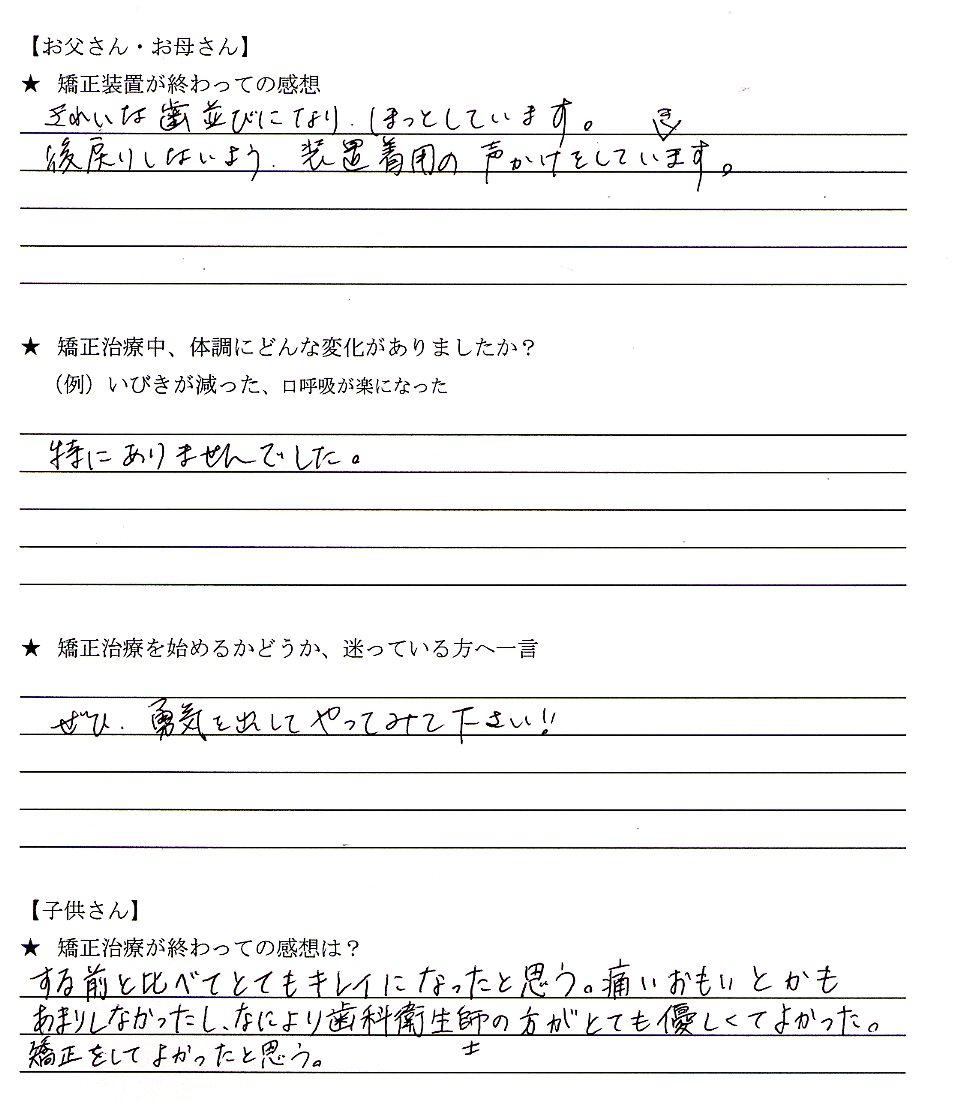 【お父さん・お母さん】
★ 矯正装置が終わっての感想
きれいな歯並びになり、ほっとしています。
き
後戻りしないよう、装置着用の声かけをしています。
★ 矯正治療中、体調にどんな変化がありましたか？
（例）いびきが減った、口呼吸が楽になった
特にありませんでした。
★ 矯正治療を始めるかどうか、迷っている方へ一言
ぜひ、勇気を出してやってみて下さい!!
【子供さん】
★ 矯正治療が終わっての感想は？
する前と比べてとてもキレイになったと思う。痛いおもいとかも
あまりしなかったし、なにより歯科衛生師の方がとても優しくてよかった。
士
矯正をしてよかったと思う。